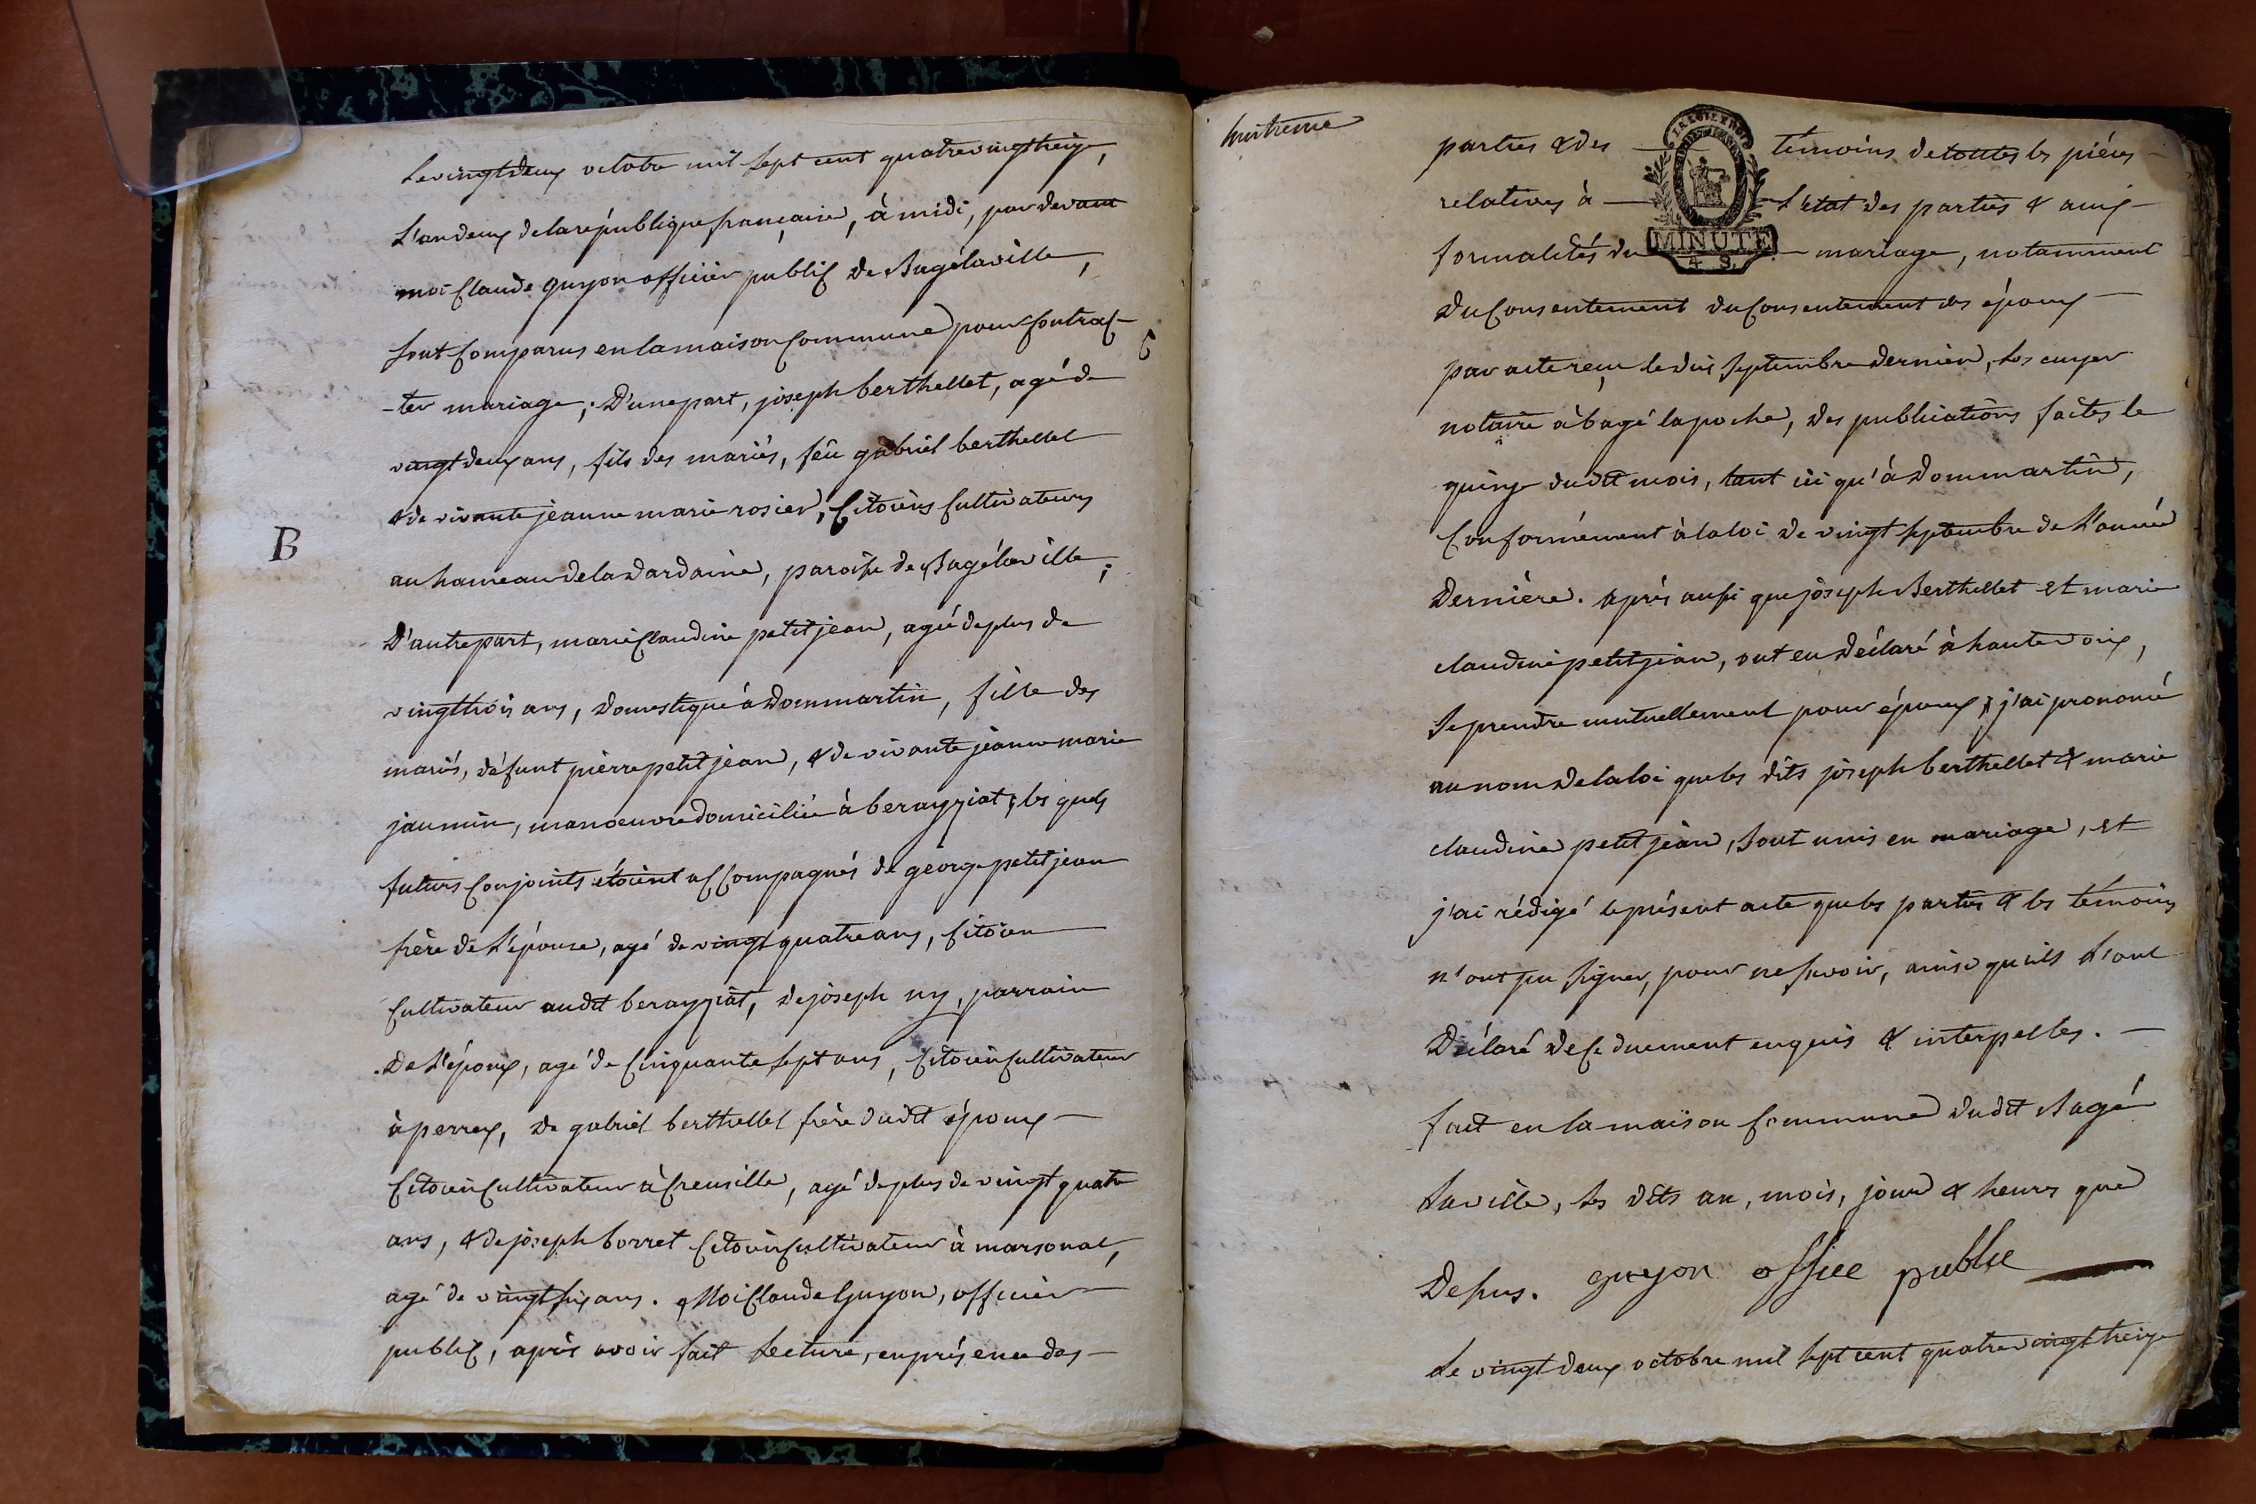 Le vingtdeux octobre mil sept cent quatrevingttreize,
L'an deux de la république française, à midi, par devant
moi Claude guyon officier public de Bagélaville,
sont Comparus en la maison Commune pour Contrac-
-ter mariage; D'une part, joseph berthellet, agé de
vingtdeux ans, fils des mariés, feû gabriel berthellet
& de vivante jeanne marie rosier, Citoiens Cultivateurs
B
au hameau de la dardaine, paroisse de Bagélaville;
D'autre part, marie Claudine petitjean, agée de plus de
vingttrois ans, domestique à Dommartin, fille des
mariés, défunt pierre petitjean, & de vivante jeanne marie
jaunin, manoeuvre domiciliée à berayziat; les quels
futurs Conjoints étoient acCompagnés de george petitjean
frère de L'épouse, agé de vingt quatre ans, Citoien
Cultivateur audit berayziat, de joseph ny, parrain
De L'époux, agé de Cinquante sept ans, Citoien Cultivateur
à perrex, de gabriel berthellet frère dudit époux
Citoien Cultivateur à Creusille, agé de plus de vingt quatre
ans, & de joseph borret Citoien Cultivateur à marsonat,
agé de vingtsix ans. Moi Claude Guyon, officier
public, après avoir fait Lecture, en présence des
huitieme
parties & des témoins de toutes les pièces
relatives à L'état des parties & aux
formalités du mariage, notamment
MINUTE
4 S.
Du Consentement du Consentement des époux
par acte reçu le dix septembre dernier,
notaire à bagé la poche, des publications faites le
quinze dudit mois, tant ici qu'à Dommartin,
Conformément à la loi de vingt septembre de L'année
Dernière. après aussi que joseph Berthellet et marie
claudine petitjean, ont eu déclaré à haute voix,
se prendre mutuellement pour époux; j'ai prononcé
au nom de la loi que les dits joseph berthellet & marie
claudine petitjean, sont unis en mariage, et
j'ai rédigé le présent acte que les parties & les témoins
n'ont pu signer, pour ne savoir, ainsi qu'ils L'ont
Déclaré de ce duement enquis & interpellés.
fait en la maison Commune dudit Bagé
Laville, les dits an, mois, jour & heure que
Dessus. guyon office public
Le vingt deux octobre mil sept cent quatre vingt treize